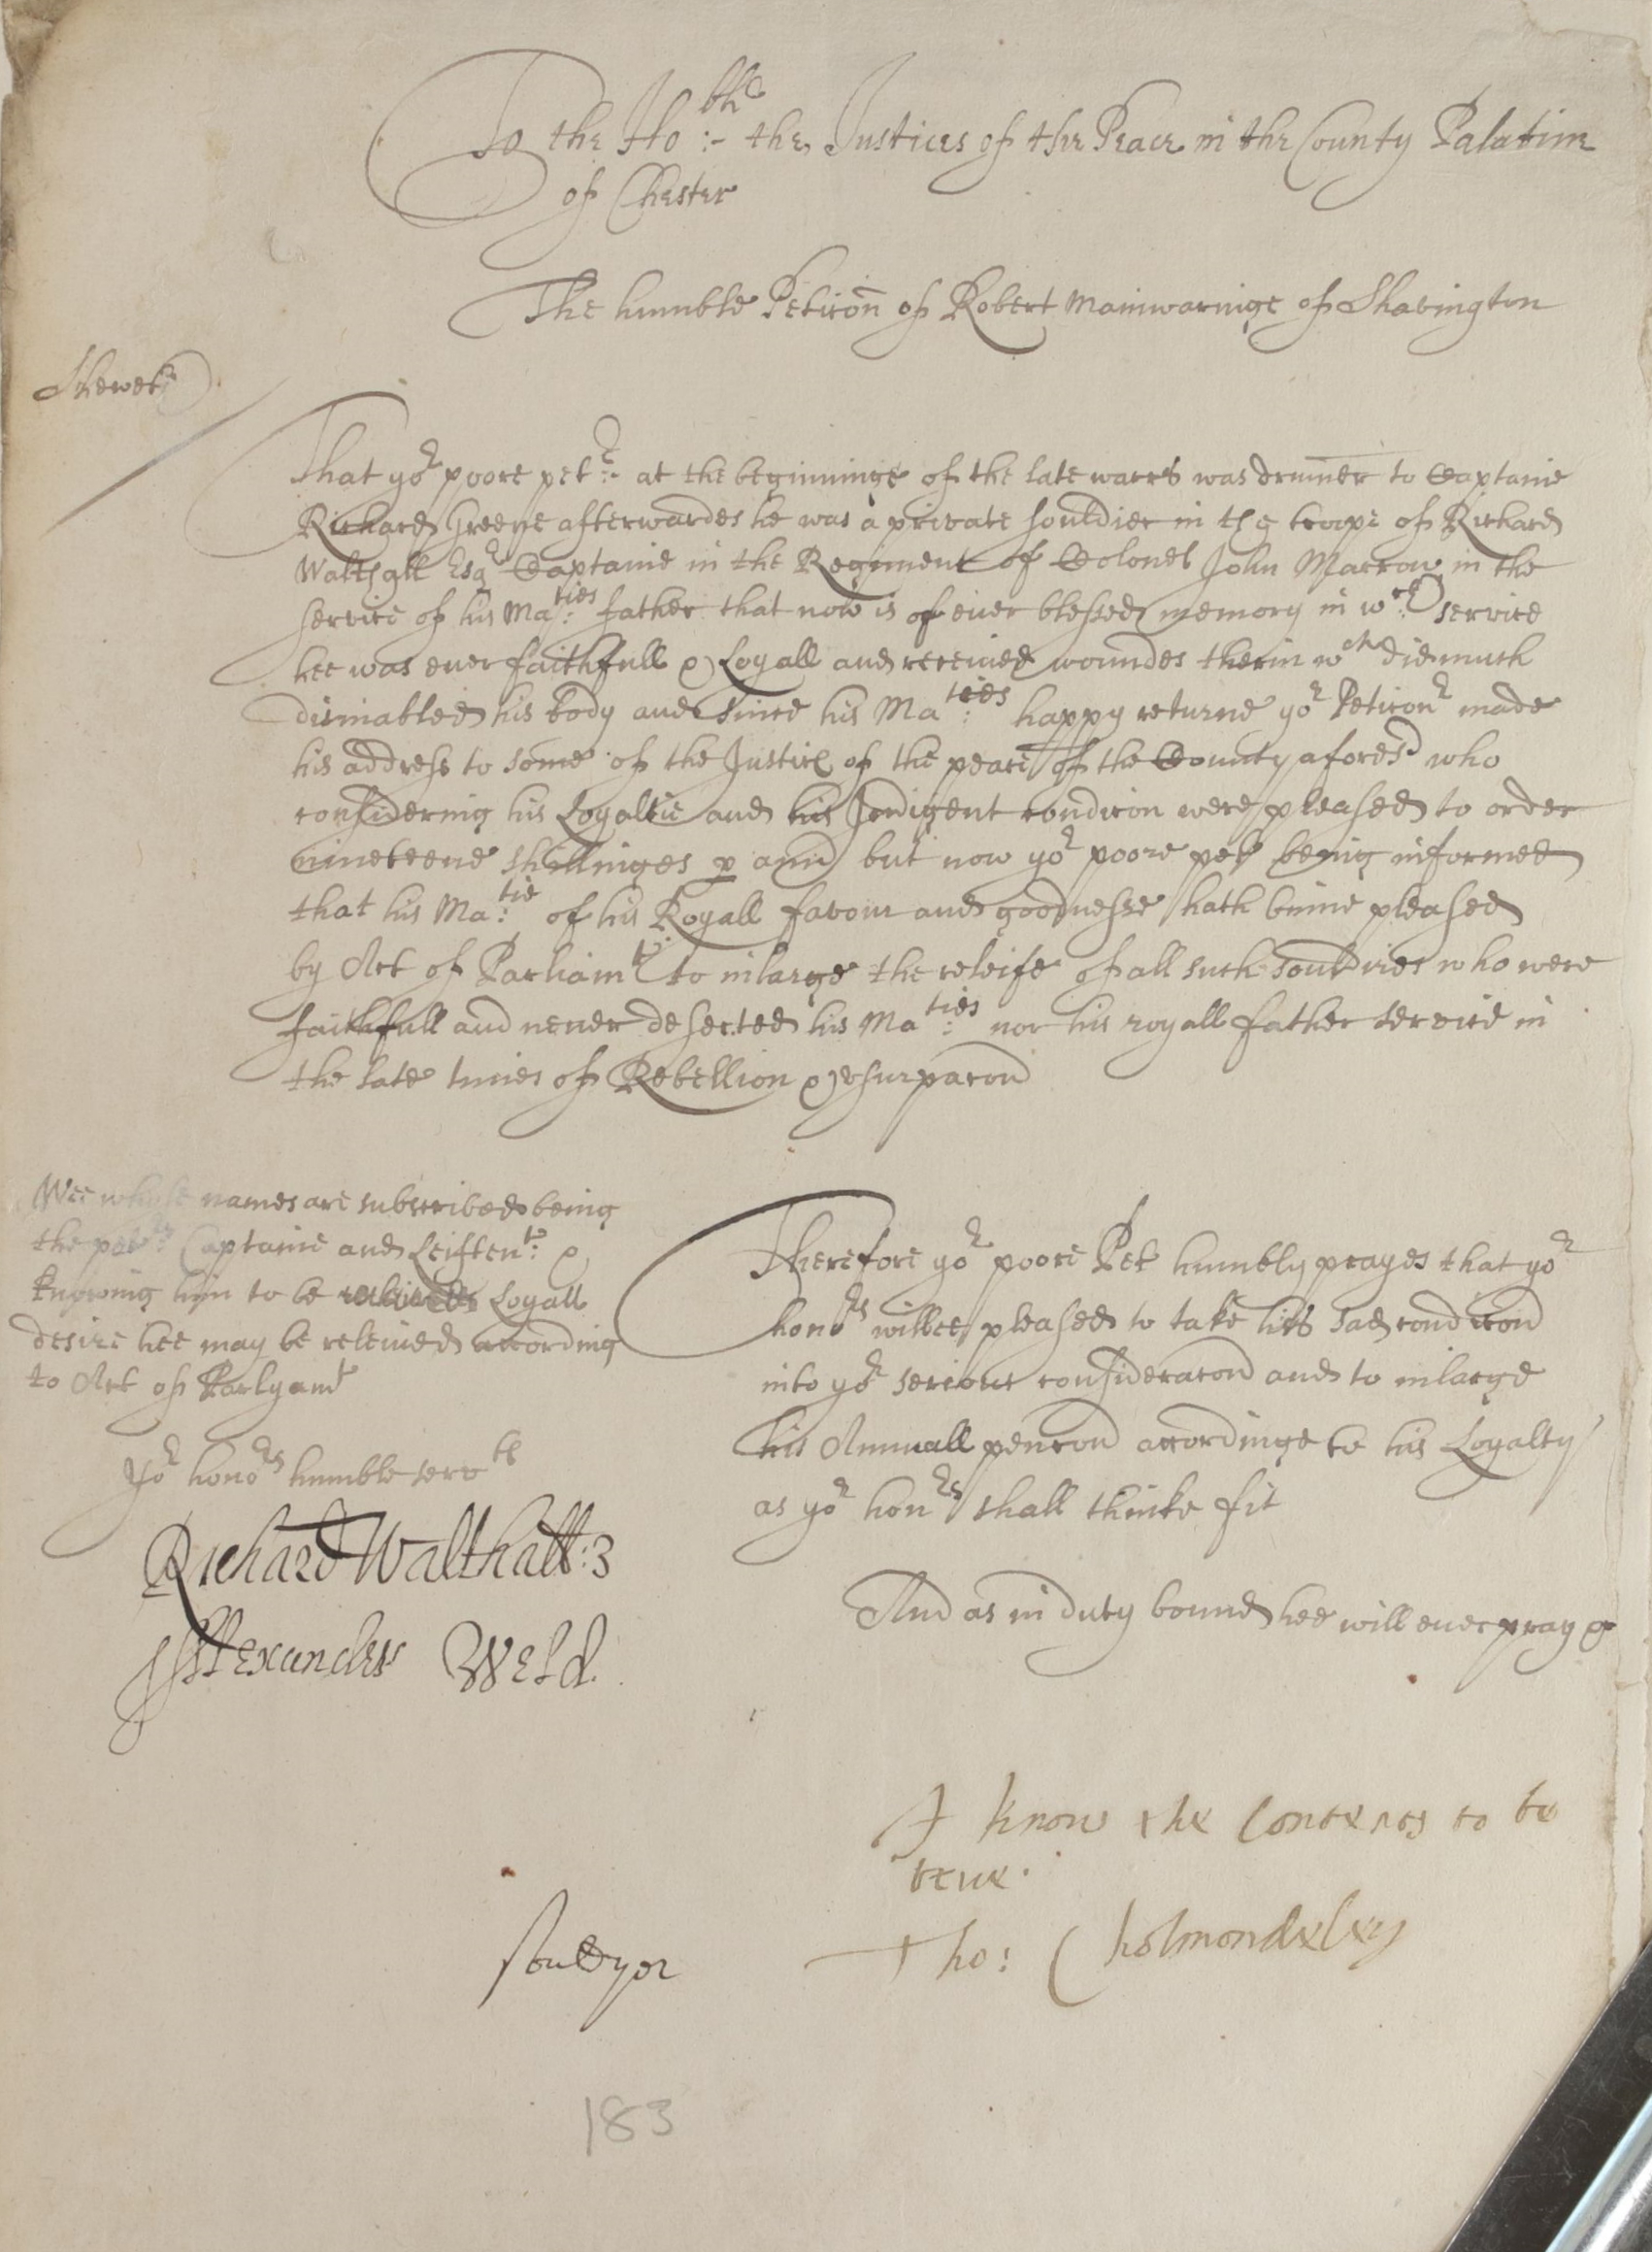 To the Ho:ble the Justices of the Peace in the County Palatine
of Chester
The humble Peticon of Robert Mainwaringe of Shavington
Sheweth
That yor poore petr: at the beginninge of the late warrs was drumer to Captaine
Richard Greene afterwardes he was a private souldier in the troope of Richard
Walthall Esqr Captaine in the Regiment of Colonel John Marrow in the
service of his Ma:ties father that now is of ever blessed memory in wch service
hee was ever faithfull & Loyall and received woundes therin wch did much
disinabled his body and since his Ma:ties happy returne yor Peticonr made
his address to some of the Justices of the peace of the County aforesd who
considering his Loyaltie and his Indigent condicon were pleased to order
nineteene shillinges p ann but now yor poore pet being informed
that his Ma:tie of his Royall favour and goodnesse hath binne pleased
by Act of Parliamt to inlarge the releife of all such souldries who were
faithfull and never deserted his Ma:ties nor his royall father service in
the late times of Rebellion & vsurpacon
Wee whose names are subscribed being
the petrs Captaine and Leiftent: &
knowing him to be Loyall
desire hee may be releived according
to Act of Parlyamt
Yor honors humble servts
Richard Walthall:
Allexander Weld
Therefore yor poore Pet humbly prayes that yor
honors willbee pleased to take his sad condicon
into yor serious consideracon and to inlarge
his Annuall pencon accordinge to his Loyalty
as yor honrs shall thinke fit
And as in duty bound hee will ever pray &
I know the Contents to be
true.
Tho: Cholmondeley
souldyor
183